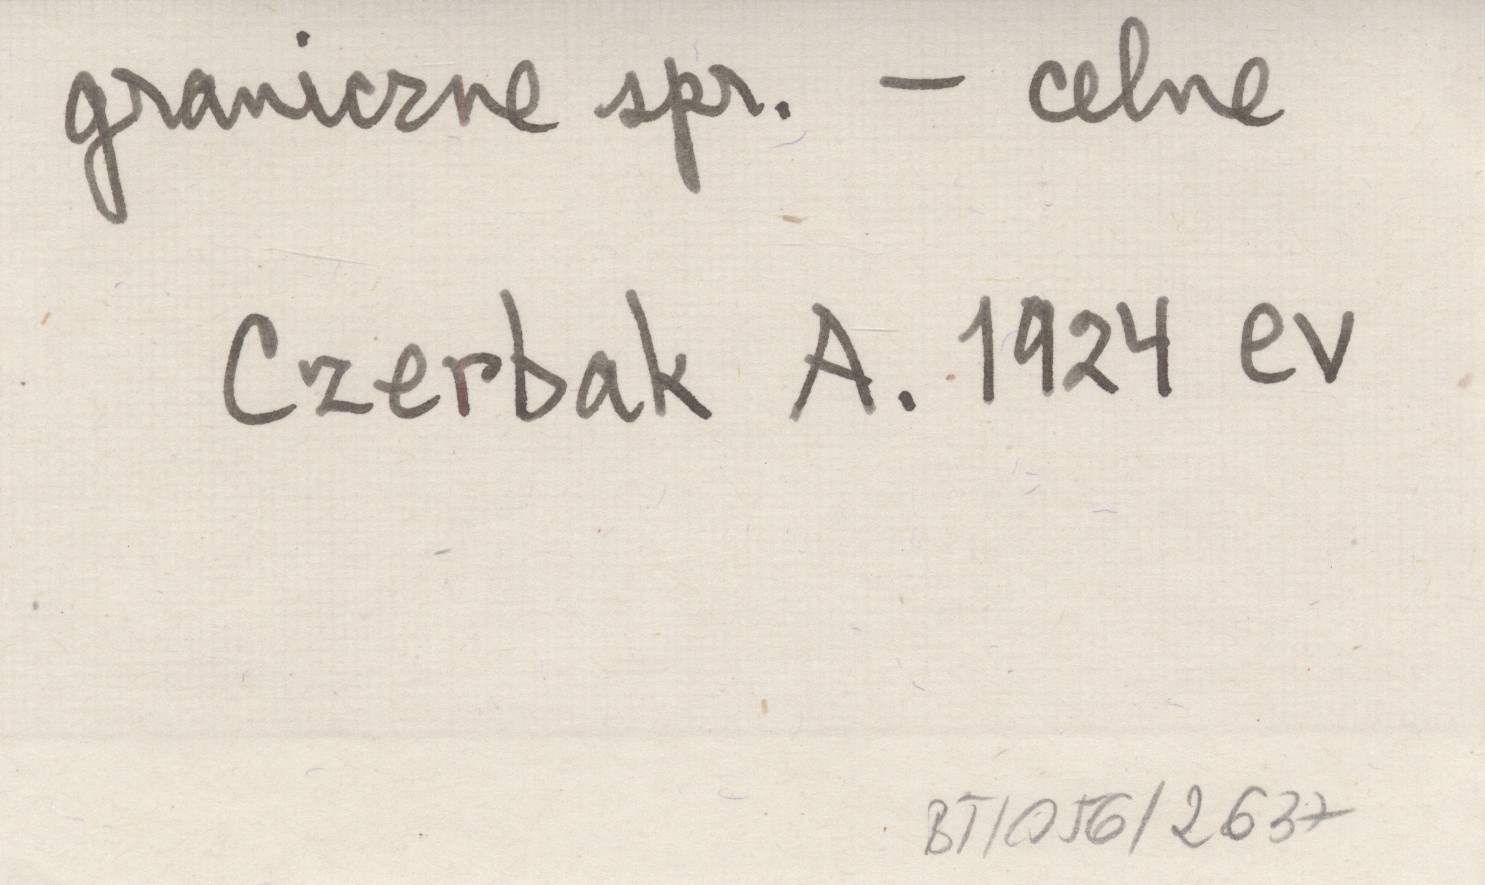 graniczne spr. – celne
Czerbak A. 1924 ev
BT/056/2637